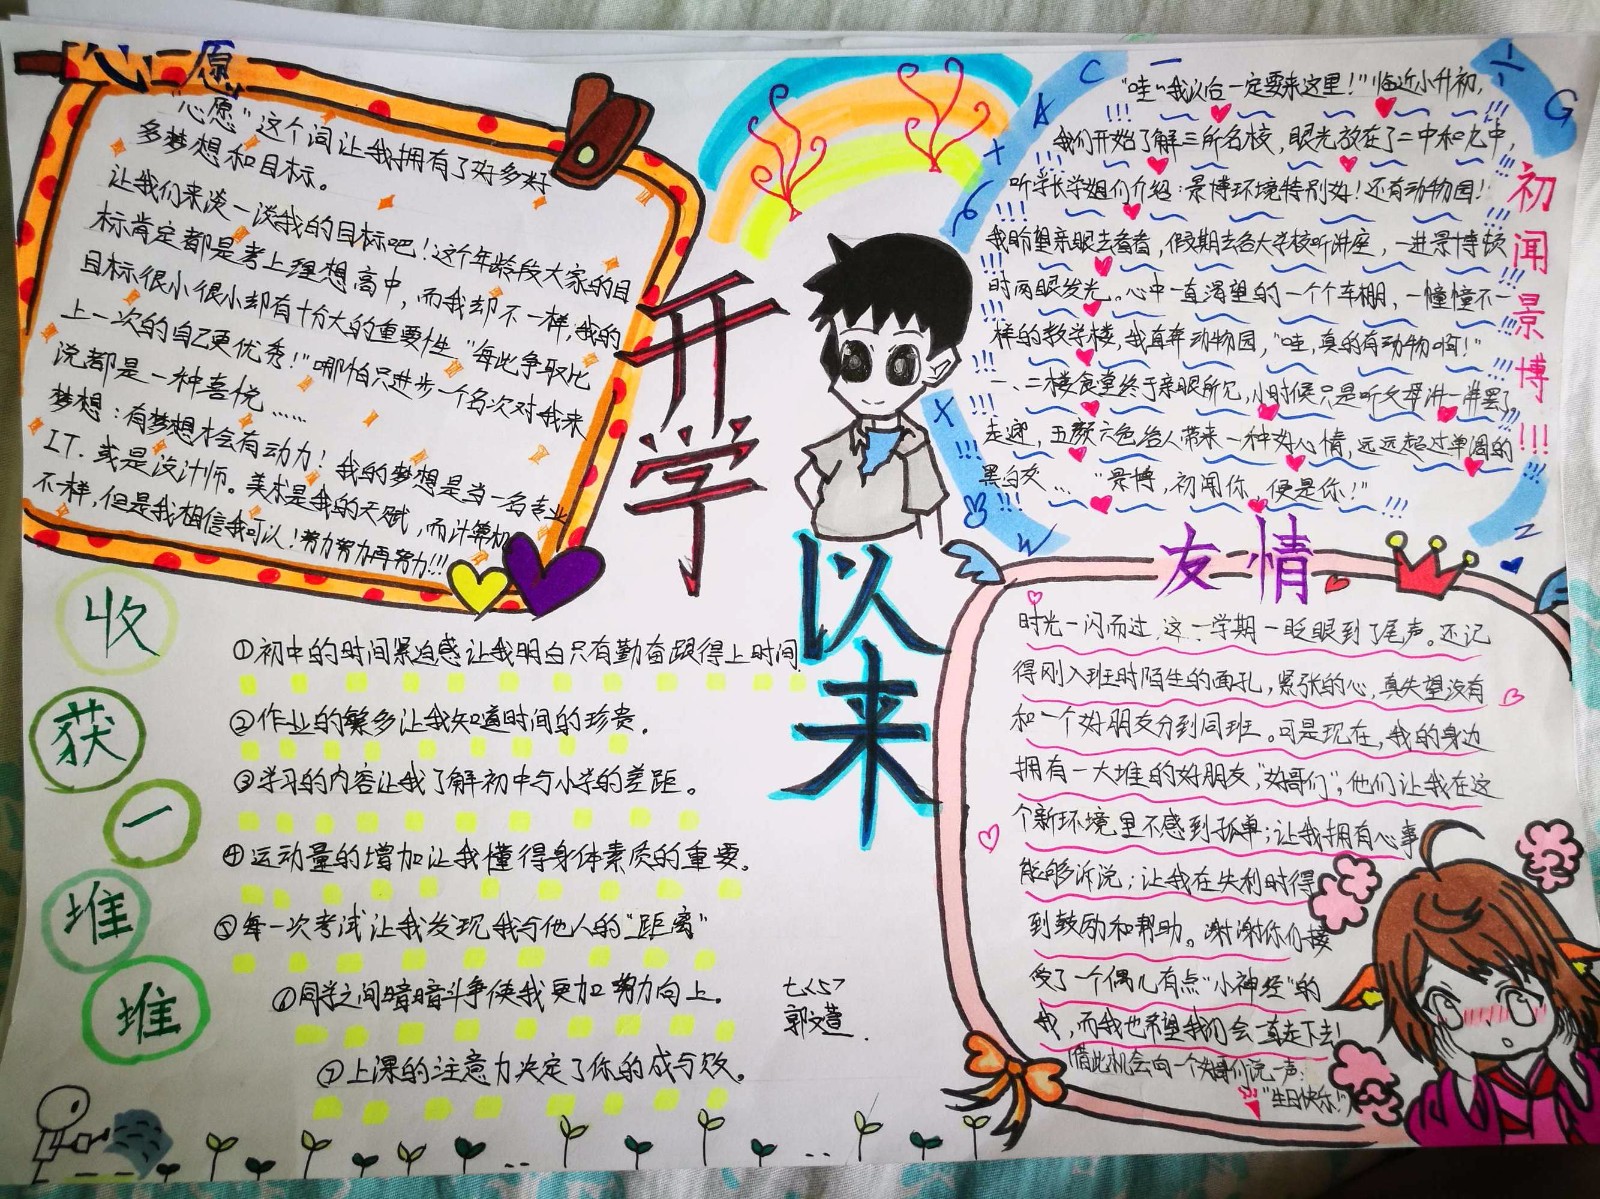 心愿
"心愿"这个词让我拥有了好多好
多梦想和目标。
让我们来谈一谈我的目标吧！这个年龄段大家的目
标肯定都是考上理想高中，而我却不一样，我的
目标很小很小却有十分大的重要性。"每此争取比
上一次的自己更优秀！"哪怕只进步一个名次对我来
说都是一种喜悦……
梦想：有梦想才会有动力！我的梦想是当一名专业
IT.或是设计师。美术是我的天赋，而计算机
不一样，但是我相信我可以！努力努力再努力!!!
开学
以来
A C 一
"哇~我以后一定要来这里！"临近小升初，
我们开始了解三所名校，眼光放在了二中和九中，
听学长学姐们介绍：景博环境特别好！还有动物园！
我盼望亲眼去看看，假期去各大学校听讲座，一进景博顿
时两眼发光。心中一直渴望的一个个车棚，一幢幢不一
样的教学楼，我直奔动物园，"哇，真的有动物啊！"
一、二楼食堂终于亲眼所见，小时候只是听文萃讲一讲罢了
走进，五颜六色给人带来一种好心情，远远超过单调的
黑白灰… "景博，初闻你，便是你！"
初闻景博!!!
G
X
W
Z
收获一堆堆
①初中的时间紧迫感让我明白只有勤奋跟得上时间.
②作业的繁多让我知道时间的珍贵。
③学习的内容让我了解初中与小学的差距。
④运动量的增加让我懂得身体素质的重要。
⑤每一次考试让我发现我与他人的"距离"
⑥同学之间暗暗斗争使我更加努力向上。
⑦上课的注意力决定了你的成与败。
七<5>
郭文萱.
友情
时光一闪而过,这一学期一眨眼到了尾声。还记
得刚入班时陌生的面孔，紧张的心，真失望没有
和一个好朋友分到同班。可是现在，我的身边
拥有一大堆的好朋友，"好哥们"，他们让我在这
个新环境里不感到孤单；让我拥有心事
能够诉说；让我在失利时得
到鼓励和帮助。谢谢你们接
受了一个偶儿有点"小神经"的
我，而我也希望我们会一直走下去！
借此机会向一个好哥们说一声：
"生日快乐！"